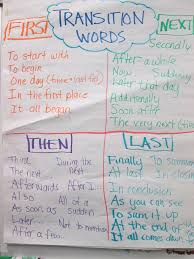 TRANSITION
WORDS
FIRST
To start with
To begin
One day
In the first place
It all began
NEXT
Secondly
After a while
Now Suddenly
Later that day
Additionally
Soon after
The very next
THEN
Third, During the
The next
Afterwards After I...
Also All of a
As soon as sudden
Later Not to mention
After a few...
LAST
Finally To
At last In closing
In conclusion
As you can see
To sum it up
At the end of
It all comes down